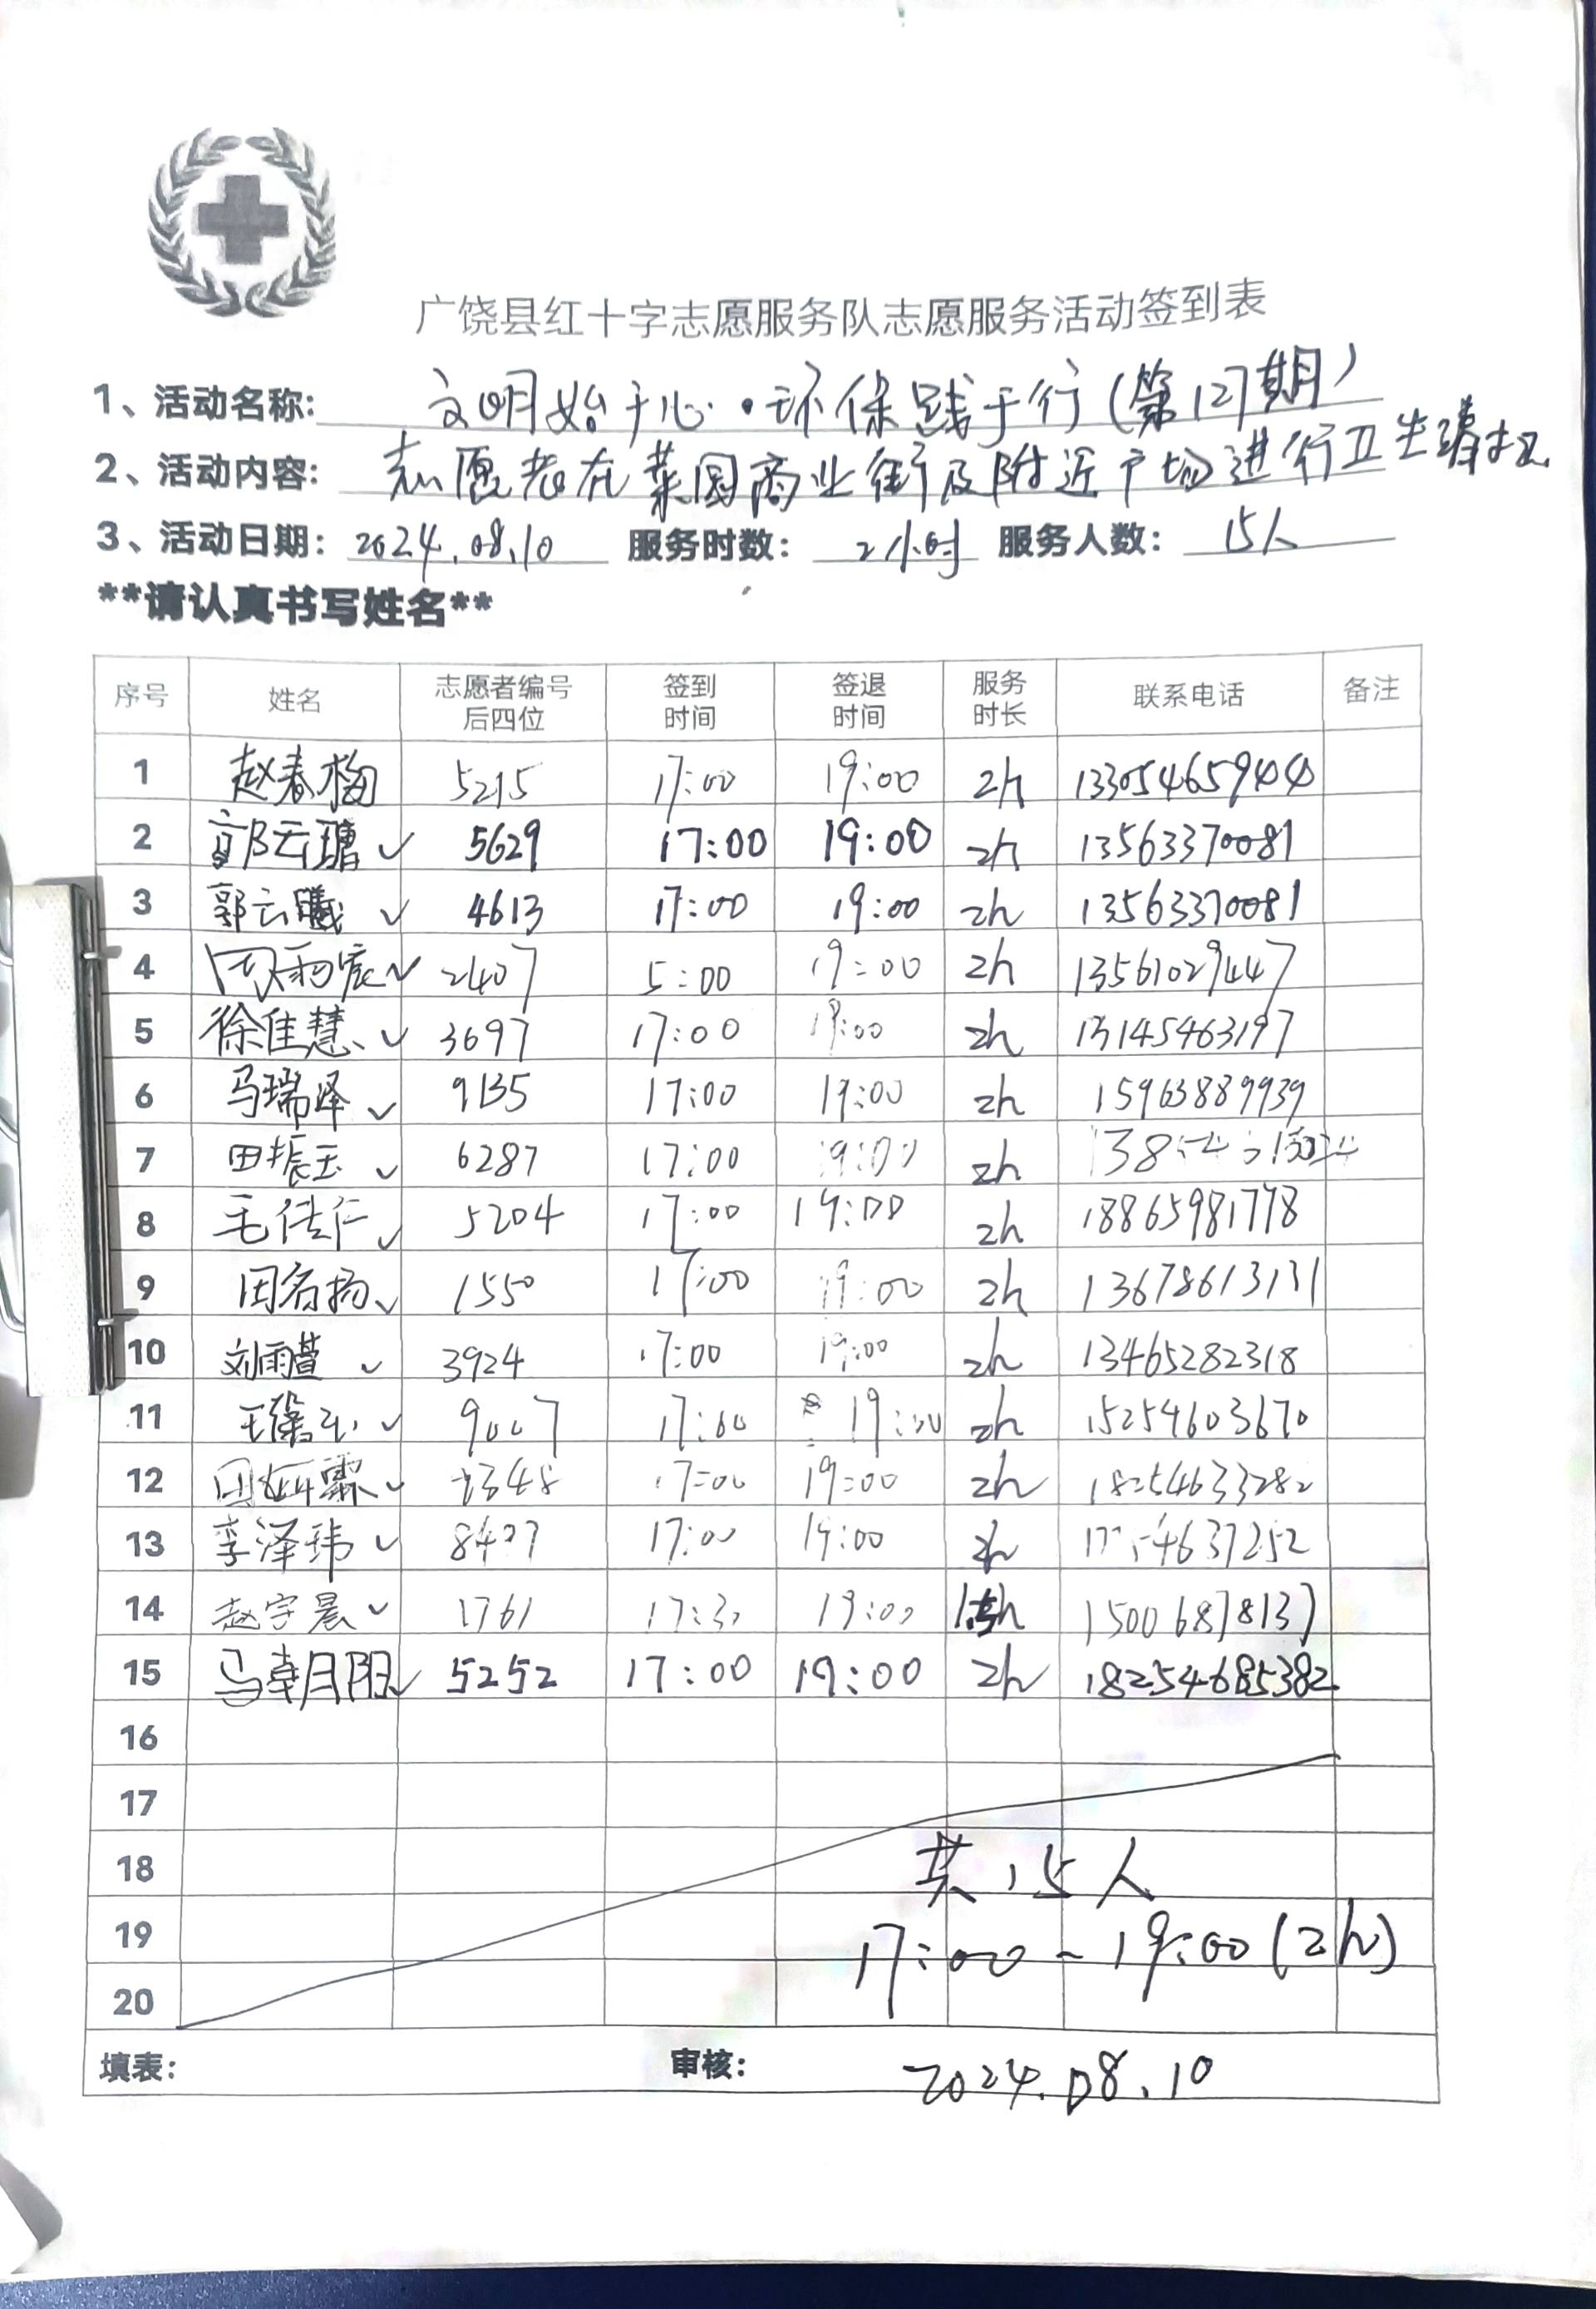 广饶县红十字志愿服务队志愿服务活动签到表
1、活动名称: 文明始于心·环保践于行(第127期)
2、活动内容: 志愿者在菜园商业街及附近广场进行卫生清扫
3、活动日期: 2024.08.10 服务时数: 2小时 服务人数: 15人
**请认真书写姓名**
序号 姓名 志愿者编号后四位 签到时间 签退时间 服务时长 联系电话 备注
1 赵春梅 5215 17:00 19:00 2h 13305465944
2 郭云瑭 ✓ 5629 17:00 19:00 2h 13563370081
3 郭云曦 ✓ 4613 17:00 19:00 2h 13563370081
4 ✓ 2407 5:00 19:00 2h 13561029447
5 徐佳慧 ✓ 3697 17:00 19:00 2h 13145463197
6 马瑞泽 ✓ 9135 17:00 19:00 2h 15963889939
7 田振玉 ✓ 6287 17:00 19:00 2h
8 毛佳仁 ✓ 5204 17:00 19:00 2h 18865981778
9 田名扬 ✓ 1550 17:00 19:00 2h 13678613131
10 刘雨萱 ✓ 3924 17:00 19:00 2h 13465282318
11 ✓ 9007 17:00 19:00 2h 15254603670
12 ✓ 17:00 19:00 2h 18254633282
13 李泽玮 ✓ 17:00 19:00 2h
14 赵宇晨 ✓ 1761 17:30 19:00 1.5h 15006878137
15 马朝阳 ✓ 5252 17:00 19:00 2h 18254685382
16
17
18 共15人
19 17:00~19:00(2h)
20
填表: 审核: 2024.08.10